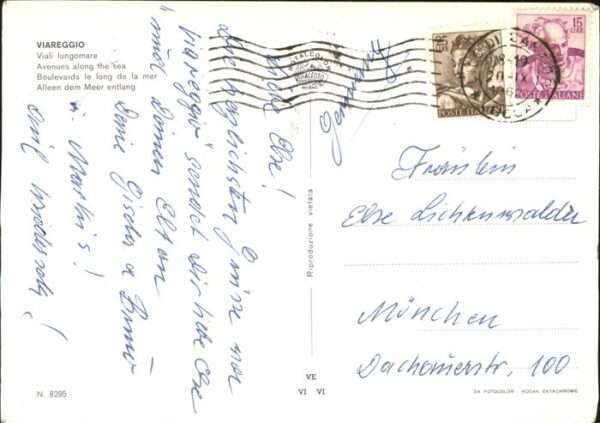 VIAREGGIO
Viali lungomare
Avenues along the sea
Boulevards le long de la mer
Alleen dem Meer entlang
Liebe Else!
Die herzlichsten Grüsse von
Viareggio sendet Dir liebe Else
und Deinen Eltern
Deine Gisela & Bruno
u. Martin s.!
Germania
15 LIRE
POSTE ITALIANE
POSTE ITALIANE
Fräulein
Else Lichtenwalder
München
Dachauerstr. 100
Riproduzione vietata
VE
VI VI
N. 8295
DA FOTOCOLOR - KODAK EKTACHROME